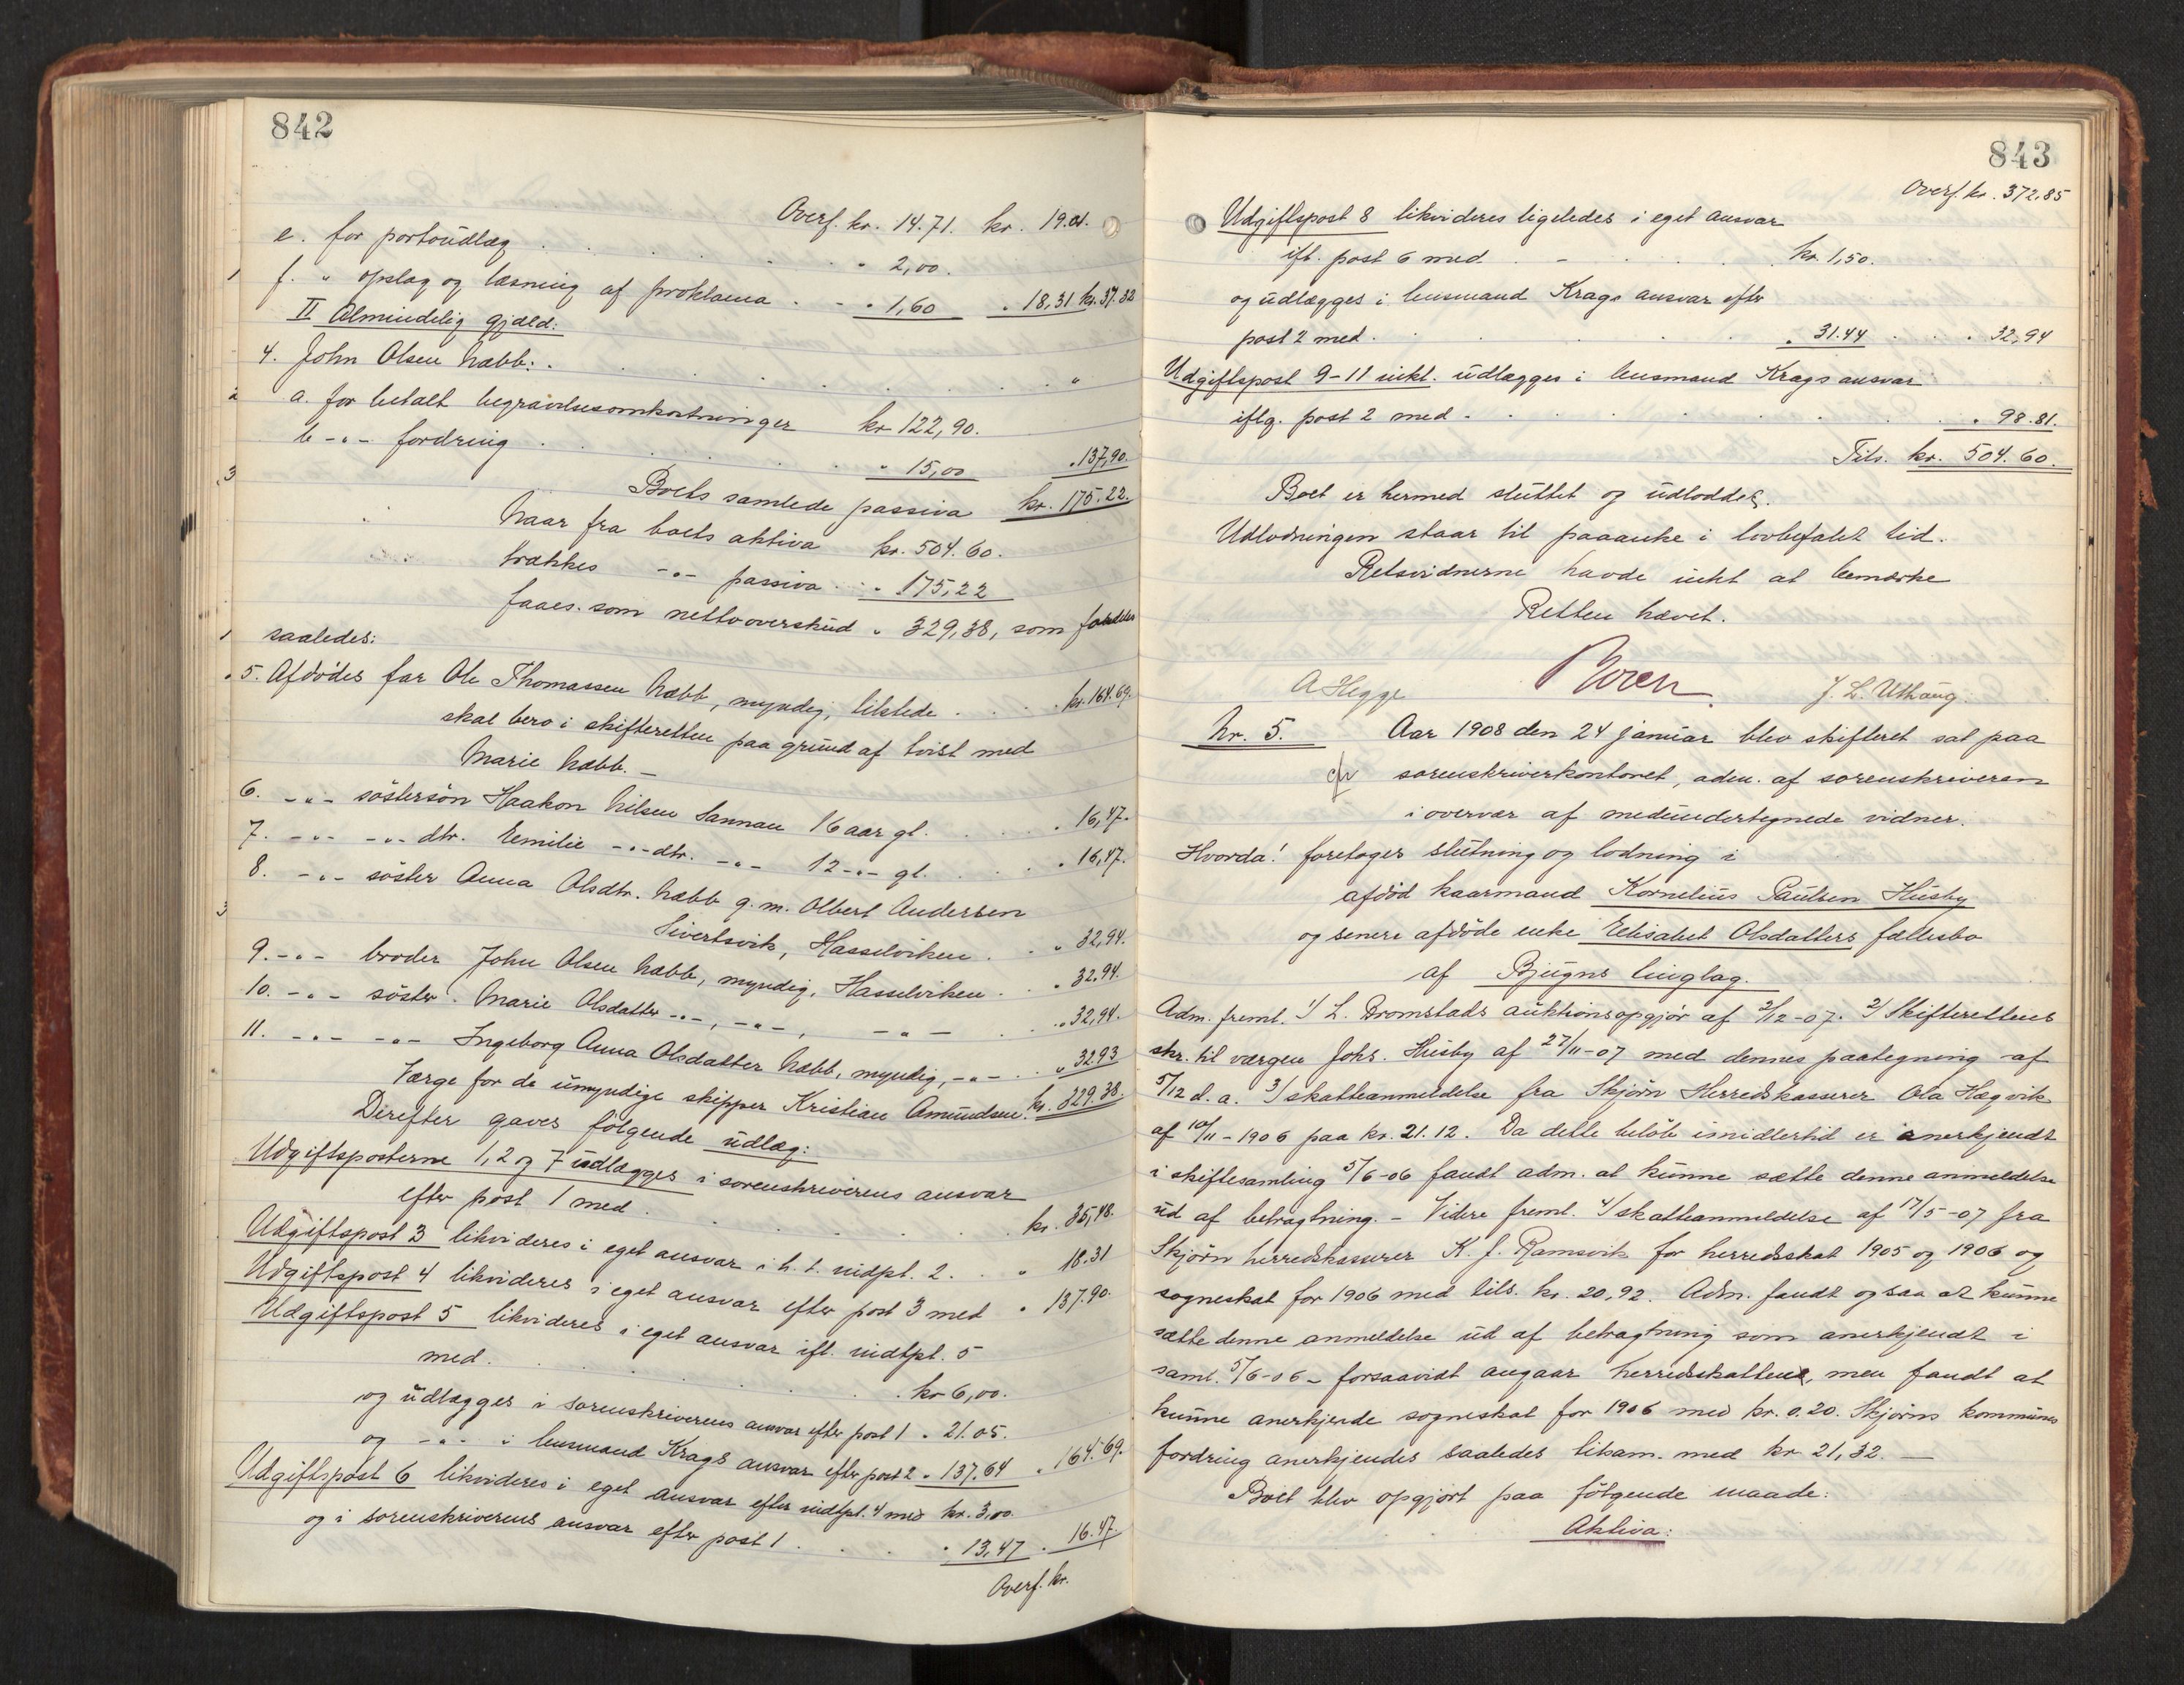 842
Overf. kr. 14.71. kr. 19.01.
e. for portoudlæg . . . . . " 2,00.
f. " opslag og læsning af proklama . - " 1,60 " 18,31 kr. 37.32
II Almindelig gjæld:
4. John Olsen Næbb: . . . . . "
a. for betalt begravelsesomkostninger kr 122,90.
b -"- fordring . . . . . " 15,00 " 137,90.
Boets samlede passiva kr. 175.22.
Naar fra boets aktiva kr. 504.60.
trækkes -"- passiva . " 175,22
faaes som nettooverskud " 329,38, som fordeles
saaledes:
5. Afdødes far Ole Thomassen Næbb, myndig, tilstede . . . kr. 164.69.
skal bero i skifteretten paa grund af tvist med
Marie Næbb. -
6. -"- søstersøn Haakon Nilsen Sannan 16 aar gl. . . . " 16,47.
7. -"- -"- dtr. Emilie -"- dtr. -"- 12 -"- gl. . . . " 16,47.
8. -"- søster Anna Olsdtr. Næbb g. m. Olbert Andersen
Sivertsvik, Hasselviken . . " 32,94.
9. -"- broder John Olsen Næbb, myndig, Hasselviken . . " 32,94.
10. -"- søster. Marie Olsdatter -"-, -"-, -"- . . " 32,94.
11. -"- -"- Ingeborg Anna Olsdatter Næbb, myndig, -"- . . " 32.93
Værge for de umyndige skipper Kristian Amundsen. kr. 329,38.
Derefter gaves følgende udlæg:
Udgiftsposterne 1, 2 og 7 udlægges i sorenskriverens ansvar
efter post 1 med . . . . . kr. 35,48.
Udgiftspost 3 likvideres i eget ansvar i h. t. indpt. 2. . . " 18.31
Udgiftspost 4 likvideres i eget ansvar efter post 3 med " 137.90.
Udgiftspost 5 likvideres i eget ansvar ifl. indtpt. 5
med . . . . . kr 6,00.
og udlægges i sorenskriverens ansvar efter post 1 " 21.05.
og -"- i lensmand Krags ansvar efter post 2 " 137.64 " 164.69.
Udgiftspost 6 likvideres i eget ansvar efter indtpt. 4 med kr. 3,00
og i sorenskriverens ansvar efter post 1 . . . " 13,47 " 16.47.
Overf. kr.
843
Overf. kr. 372,85
Udgiftspost 8 likvideres ligeledes i eget ansvar
ifl. post 6 med . - . . . kr. 1,50.
og udlægges i lensmand Krags ansvar efter
post 2 med . . . . . " 31.44 . . . " 32,94
Udgiftspost 9-11 inkl. udlægges i lensmand Krags ansvar
iflg. post 2 med . . . . . " 98.81.
Tils. kr. 504.60.
Boet er hermed sluttet og udloddet.
Udlodningen staar til paaanke i lovbefalet tid.
Retsvidnerne havde intet at bemærke
Retten hævet.
A Hegge J. L. Uthaug.
Nr. 5. Aar 1908 den 24 januar blev skifteret sat paa
sorenskriverkontoret, adm. af sorenskriveren
i overvær af medundertegnede vidner.
Hvorda! foretages slutning og lodning i
afdød kaarmand Kornelius Paulsen Husby
og senere afdøde enke Elisabet Olsdatters fællesbo
af Bjugns tinglag.
Adm. freml. 1/ L. Dromstads auktionsopgjør af 2/12-07. 2/ Skifterettens
skr. til værgen Johs. Husby af 27/11-07 med dennes paategning af
5/12 d. a. 3/ skatteanmeldelse fra Skjørn Herredskasserer Ola Hægvik
af 10/11-1906 paa kr. 21.12. Da dette beløb imidlertid er anerkjendt
i skiftesamling 5/6-06 fandt adm. at kunne sætte denne anmeldelse
ud af betragtning. - Videre freml. 4/ skatteanmeldelse af 17/5-07 fra
Skjørn herredskasserer K. J. Ramsvik for herredsskat 1905 og 1906 og
sogneskat for 1906 med tils. kr. 20,92. Adm. fandt ogsaa at kunne
sætte denne anmeldelse ud af betragtning som anerkjendt i
saml. 5/6-06 - forsaavidt angaar herredsskatten, men fandt at
kunne anerkjende sogneskat for 1906 med kr. 0.20. Skjørns kommunes
fordring anerkjendes saaledes tilsam. med kr. 21,32. -
Boet blev opgjort paa følgende maade:
Aktiva: